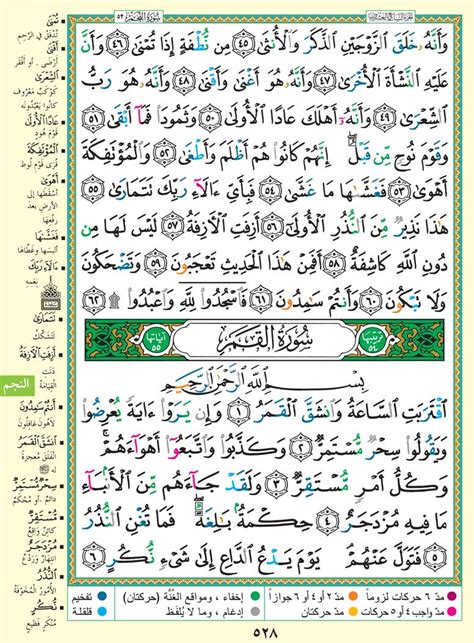 سُورَةُ النَّجْمِ ٥٣
وَأَنَّهُۥ خَلَقَ ٱلزَّوْجَيْنِ ٱلذَّكَرَ وَٱلْأُنثَىٰ ٤٥ مِن نُّطْفَةٍ إِذَا تُمْنَىٰ ٤٦ وَأَنَّ
عَلَيْهِ ٱلنَّشْأَةَ ٱلْأُخْرَىٰ ٤٧ وَأَنَّهُۥ هُوَ أَغْنَىٰ وَأَقْنَىٰ ٤٨ وَأَنَّهُۥ هُوَ رَبُّ
ٱلشِّعْرَىٰ ٤٩ وَأَنَّهُۥٓ أَهْلَكَ عَادًا ٱلْأُولَىٰ ٥٠ وَثَمُودَا۟ فَمَآ أَبْقَىٰ ٥١
وَقَوْمَ نُوحٍ مِّن قَبْلُ ۖ إِنَّهُمْ كَانُوا۟ هُمْ أَظْلَمَ وَأَطْغَىٰ ٥٢ وَٱلْمُؤْتَفِكَةَ
أَهْوَىٰ ٥٣ فَغَشَّىٰهَا مَا غَشَّىٰ ٥٤ فَبِأَىِّ ءَالَآءِ رَبِّكَ تَتَمَارَىٰ ٥٥
هَٰذَا نَذِيرٌ مِّنَ ٱلنُّذُرِ ٱلْأُولَىٰٓ ٥٦ أَزِفَتِ ٱلْءَازِفَةُ ٥٧ لَيْسَ لَهَا مِن
دُونِ ٱللَّهِ كَاشِفَةٌ ٥٨ أَفَمِنْ هَٰذَا ٱلْحَدِيثِ تَعْجَبُونَ ٥٩ وَتَضْحَكُونَ
وَلَا تَبْكُونَ ٦٠ وَأَنتُمْ سَٰمِدُونَ ٦١ فَٱسْجُدُوا۟ لِلَّهِ وَٱعْبُدُوا۟ ۩ ٦٢
ترتيبها ٥٤ سُورَةُ القَمَرِ آياتها ٥٥
بِسْمِ ٱللَّهِ ٱلرَّحْمَٰنِ ٱلرَّحِيمِ
ٱقْتَرَبَتِ ٱلسَّاعَةُ وَٱنشَقَّ ٱلْقَمَرُ ١ وَإِن يَرَوْا۟ ءَايَةً يُعْرِضُوا۟
وَيَقُولُوا۟ سِحْرٌ مُّسْتَمِرٌّ ٢ وَكَذَّبُوا۟ وَٱتَّبَعُوٓا۟ أَهْوَآءَهُمْ ۚ
وَكُلُّ أَمْرٍ مُّسْتَقِرٌّ ٣ وَلَقَدْ جَآءَهُم مِّنَ ٱلْأَنۢبَآءِ
مَا فِيهِ مُزْدَجَرٌ ٤ حِكْمَةٌۢ بَٰلِغَةٌ ۖ فَمَا تُغْنِ ٱلنُّذُرُ
٥ فَتَوَلَّ عَنْهُمْ ۘ يَوْمَ يَدْعُ ٱلدَّاعِ إِلَىٰ شَىْءٍ نُّكُرٍ ٦
تُمْنَى
تُدْفَقُ في الرَّحِمِ
أَقْنَى
أرْضَى . أو أفْقَر
الشِّعْرَى
كَوْكَبٌ مَعْرُوفٌ
كانوا يَعْبُدُونَهُ
عَادًا الْأُولَى
قَوْمُ هُودٍ
الْمُؤْتَفِكَةَ
قُرَى قَوْمِ لُوطٍ
أَهْوَى
أسْقَطَها إلى
الأرْضِ بعدَ
رَفْعِها
فَغَشَّاهَا
ألْبَسَها وغَطَّاها
آلَاءِ رَبِّكَ
نِعَمِهِ
تَتَمَارَى
تَتَشَكَّكُ
أَزِفَتِ الْآزِفَةُ
النجم
أَنْتُمْ سَامِدُونَ
لاهُونَ غافِلُون
انْشَقَّ الْقَمَرُ
سِحْرٌ مُسْتَمِرٌّ
دائِمٌ . أو
مُحْكَمٌ
مُسْتَقِرٌّ
كائِنٌ وواقِعٌ
مُزْدَجَرٌ
النُّذُرُ
نُكُرٍ
مُنْكَرٍ فَظِيعٍ
مدّ ٦ حركات لزوماً مدّ ٢ أو ٤ أو ٦ جوازاً إخفاء، ومواقع الغُنَّة (حركتان) تفخيم
مدّ واجب ٤ أو ٥ حركات مدّ حركتان إدغام، وما لا يُلفَظ قلقلة
٥٢٨